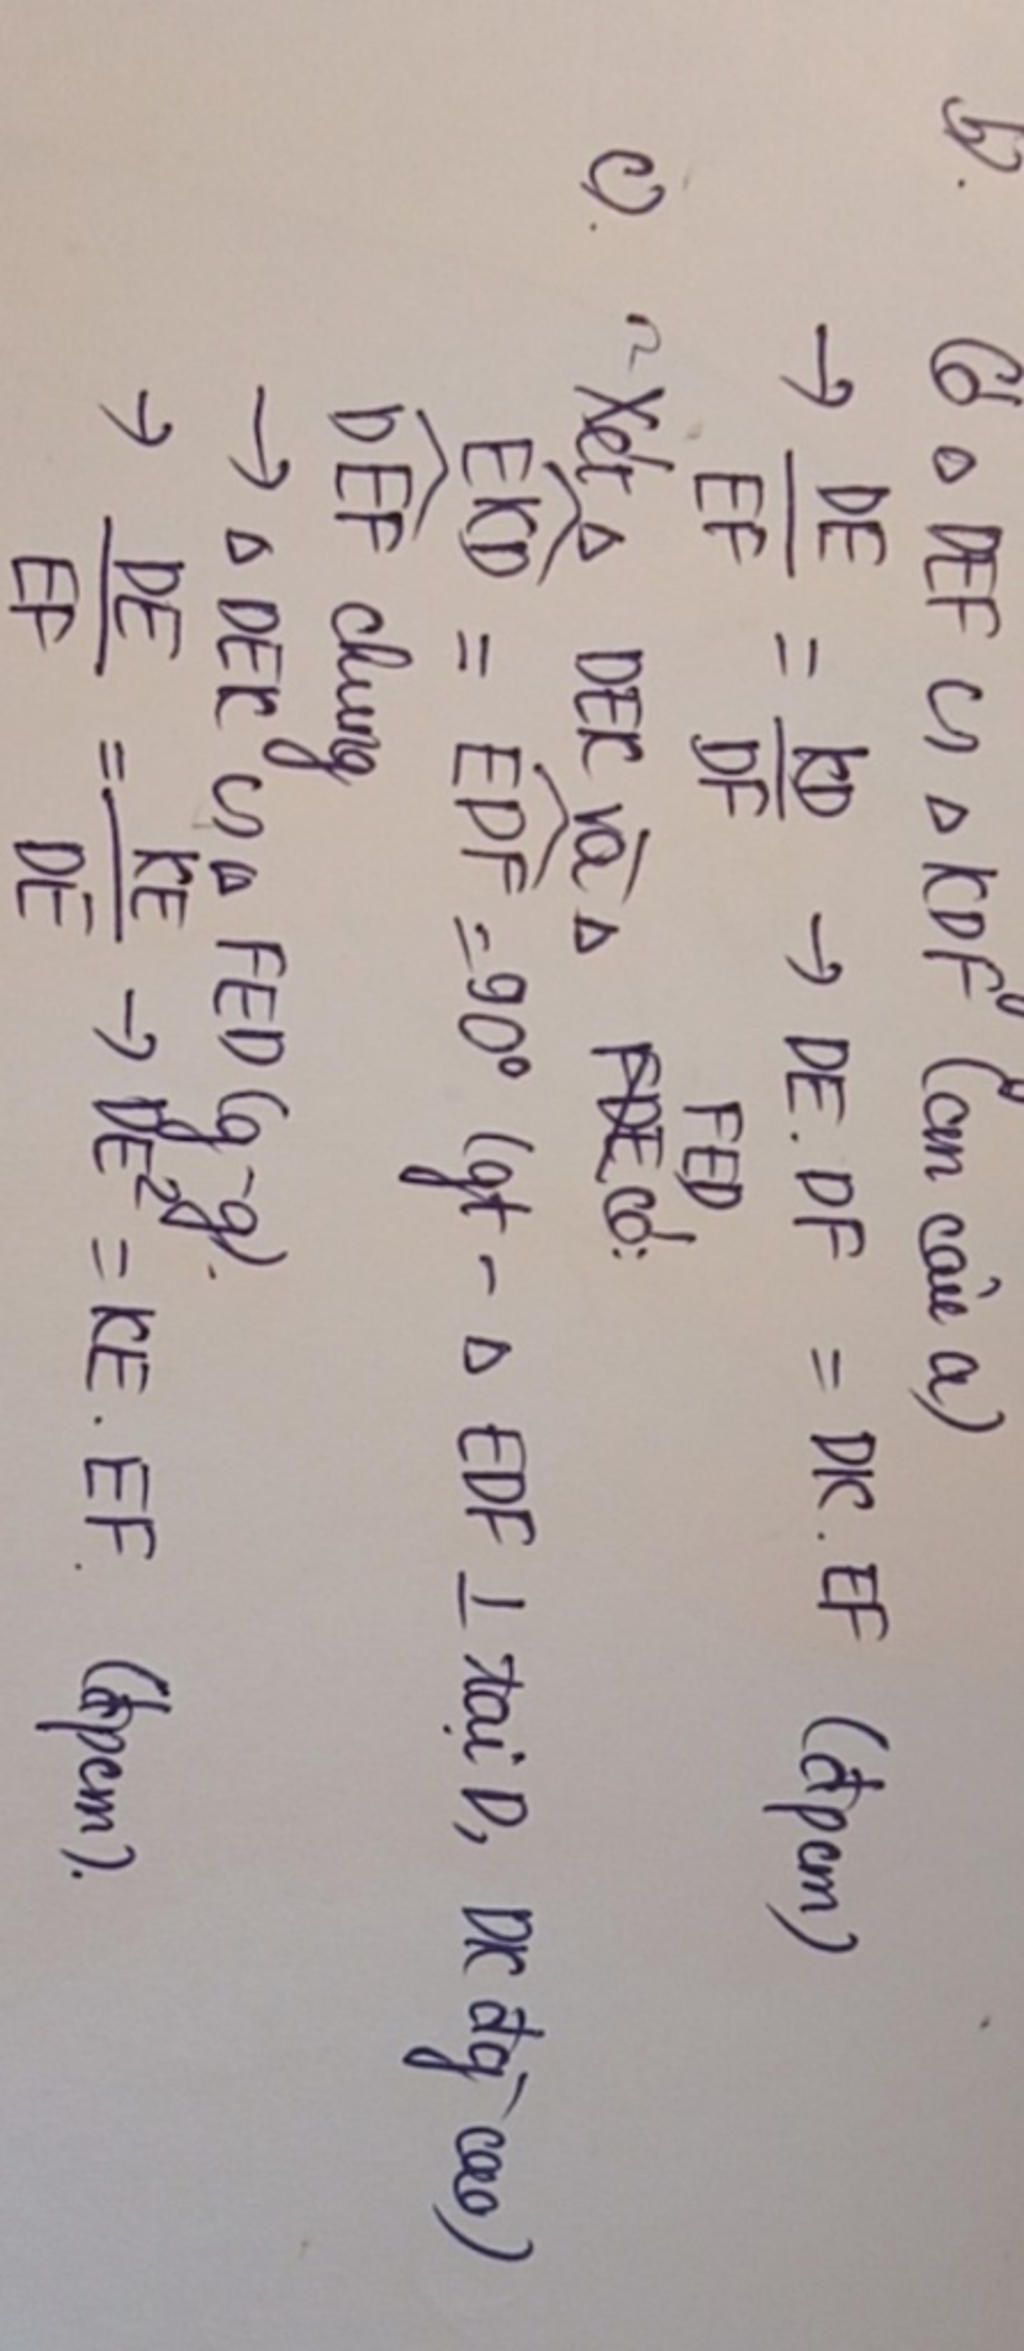 b). Có △ DEF ∽ △ KDF (cm câu a)
→ DE/EF = KD/DF → DE . DF = DK . EF (đpcm)
c). ~ Xét △ DEK và △ FED có:
EKD = EDF = 90° (gt - △ EDF ⊥ tại D, DK đg cao)
DEF chung
→ △ DEK ∽ △ FED (g-g).
→ DE/EF = KE/DE → DE² = KE . EF. (đpcm).